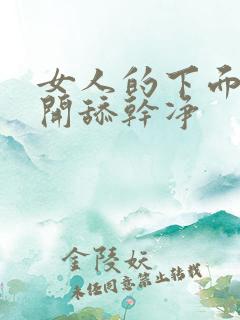 女人的下而
開舔幹净
金陵妖
未经同意禁止转载